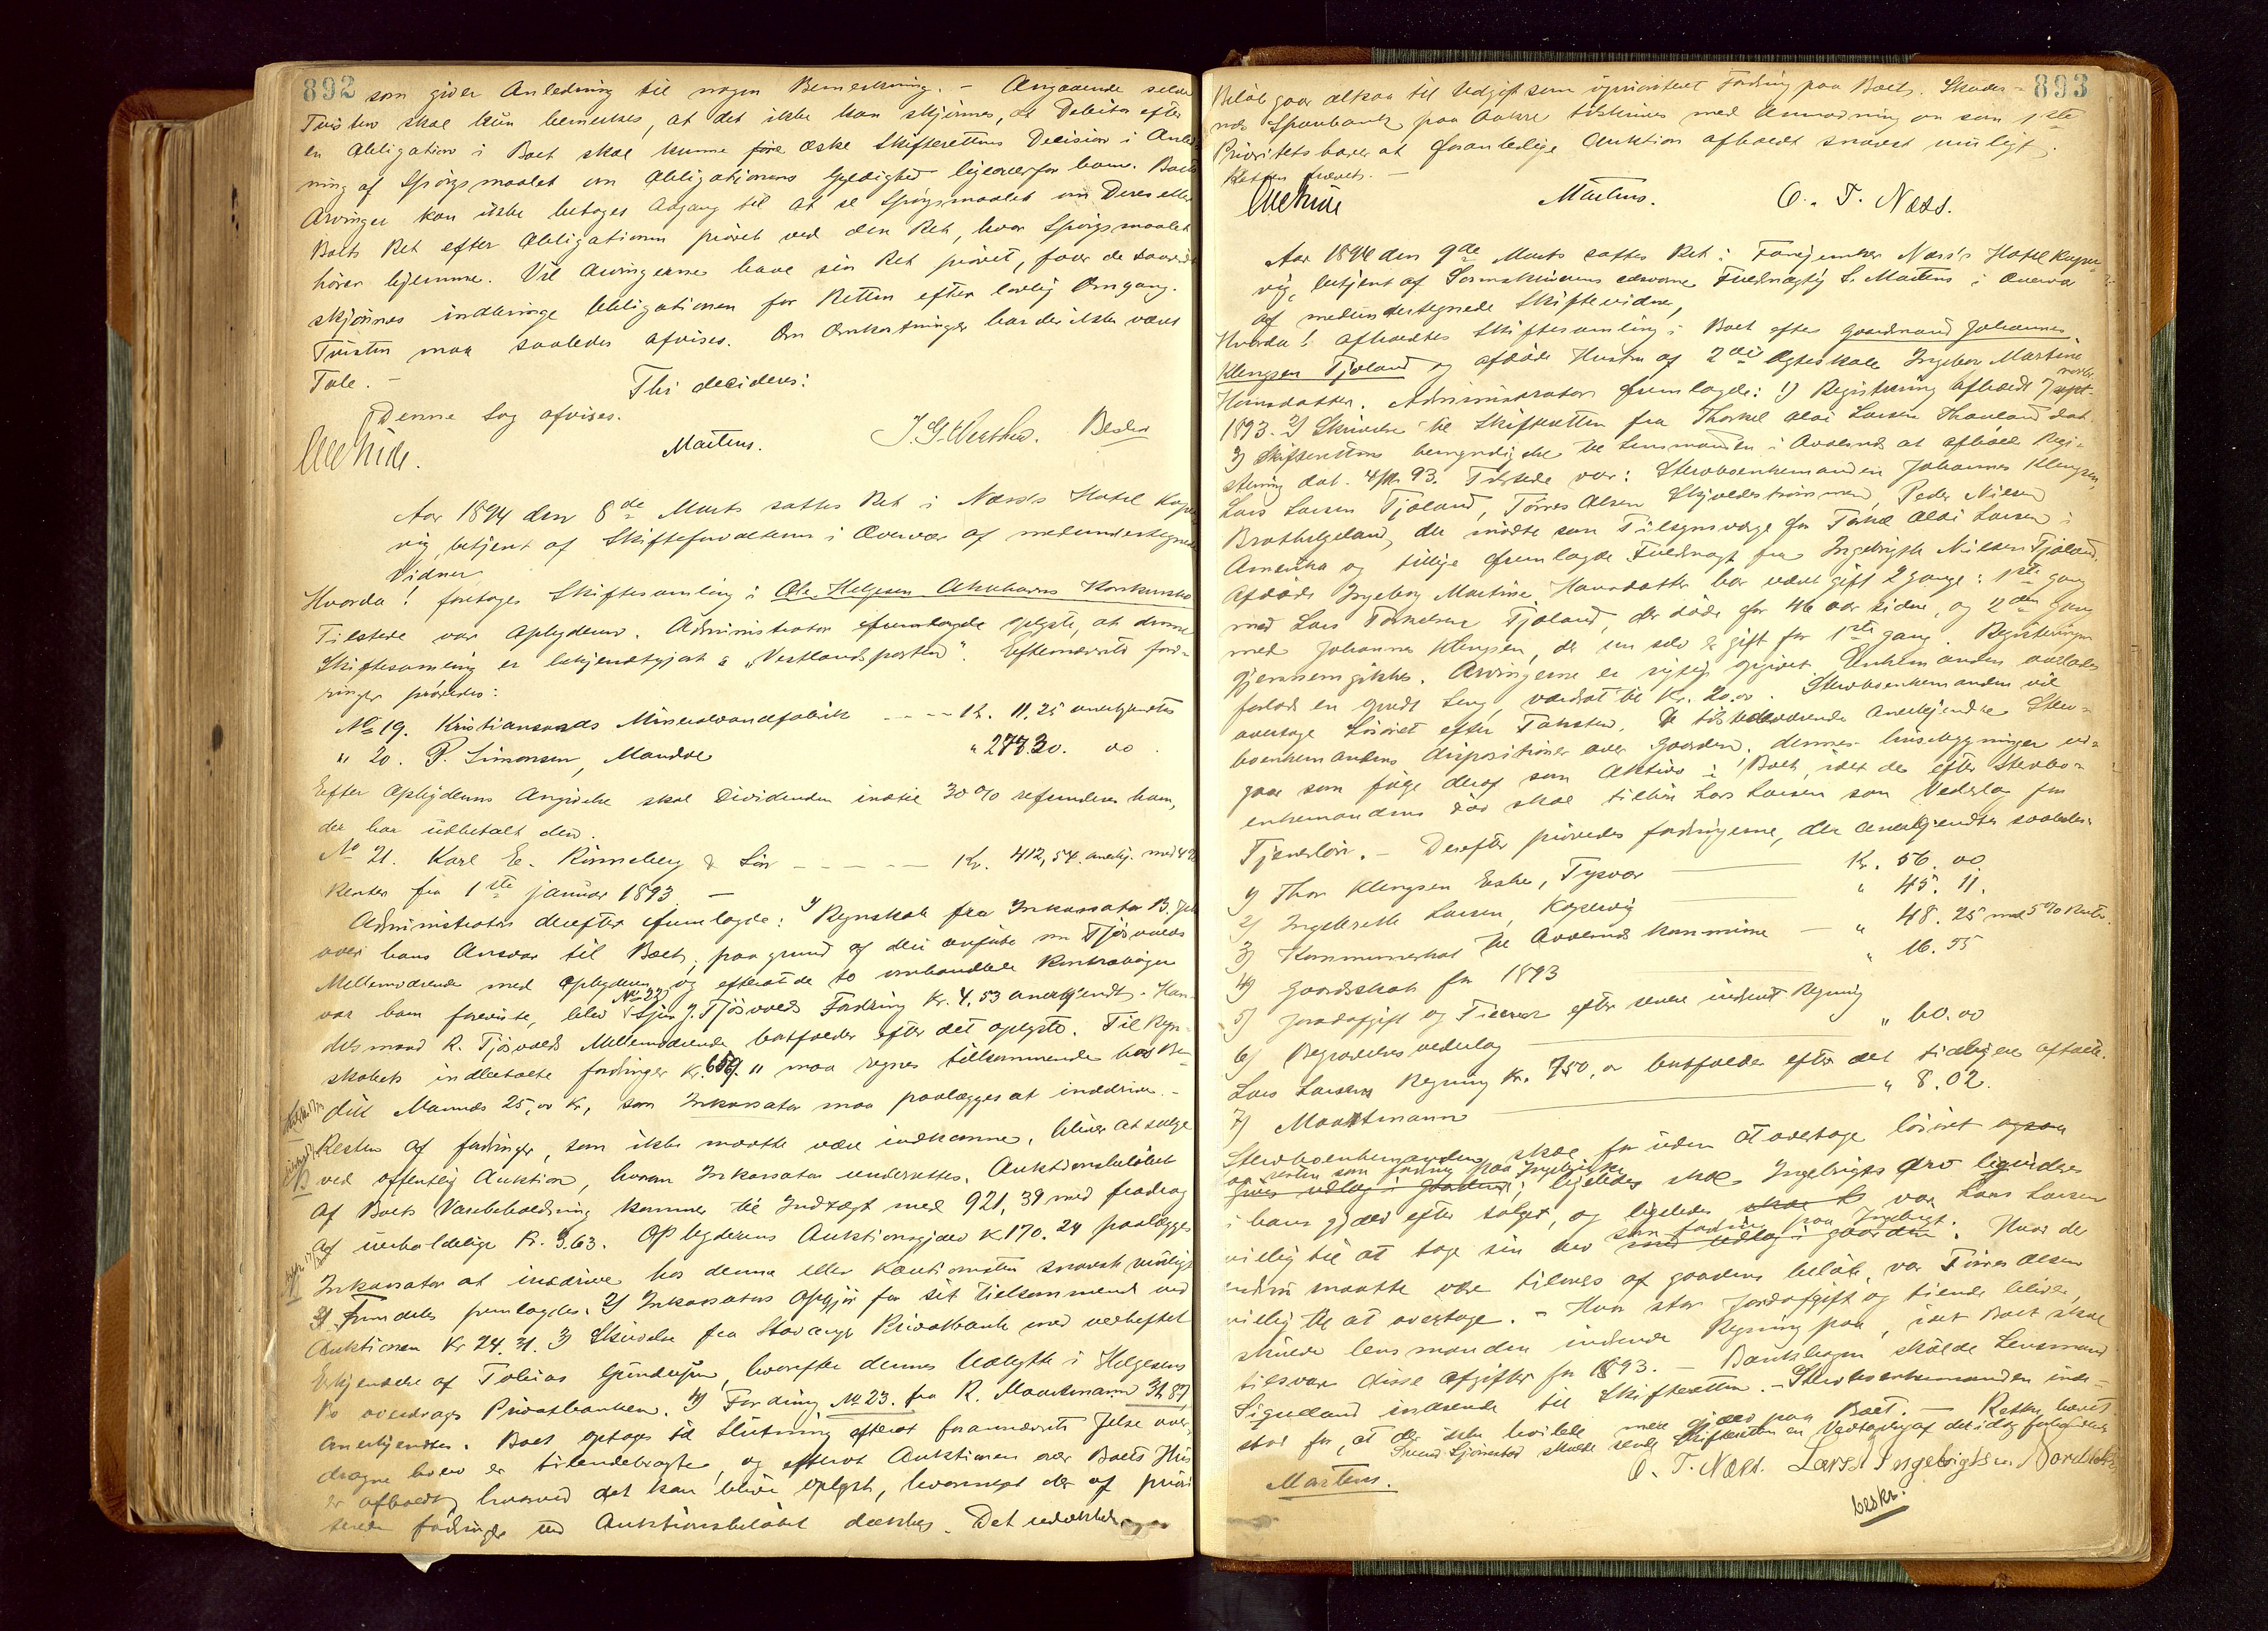 892
som giver Anledning til nogen Bemerkning. - Angaaende selve
Tvisten skal kun bemerkes, at det ikke kan skjønnes, at Debitor efter
en Obligation i Boet skal kunne æske Skifterettens Decision i Anled-
ning af Spørgsmaalet om Obligationens Gyldighed ligeoverfor ham. Boets
Arvinger kan ikke betages Adgang til at se Spørgsmaalet om Deres eller
Boets Ret efter Obligationen prøvet ved den Ret, hvor Spørgsmaalet
hører hjemme. Vil Arvingerne have sin Ret prøvet, faar de
skjønnes indbringe Obligationen for Retten efter lovlig Omgang.
Tvisten maa saaledes afvises. Om Omkostninger har der ikke været
Tale. -
Thi decideres:
Denne Sag afvises.
Martens.
Aar 1894 den 8de Marts sattes Ret i Næss's Hotel Koper-
vig, betjent af Skifteforvalteren i Overvær af medundertegnede
Vidner
Hvorda! foretoges Skiftesamling i Ole Helgesen Aakrehavns Konkursbo
Tilstede var Opbyderen. Administrator oplyste, at denne
Skiftesamling er bekjendtgjort i "Vestlandsposten". Eftern­ævnte ford-
ringer prøvedes:
No 19. Kristianssands Mineralvandfabrik - - - Kr. 11,25 anerkjendtes
" 20. P. Simonsen, Mandal " 277.30. oo.
Efter Opbyderens Angivelse skal Dividenden indtil 30% refunderes ham,
der har udbetalt den.
No 21. Karl E. Rönneberg & Sön - - - - - Kr. 412,54. anerkj. med 4%
Renter fra 1ste januar 1893 -
Administrator derefter fremlagde: 1) Regnskab fra Inkassator B.
over hans Ansvar til Boet, paa grund af det anførte om Tjøsvolds
Mellemværende med Opbyderen og efterat de to omhandlede Kontrabøger
var ham foreviste, blev No 22 J. Tjøsvolds Fordring Kr. 4,53 anerkjendt. Han-
delsmand R. Tjøsvolds Mellemværende bortfalder efter det oplyste. Til Regn-
skabets indbetalte fordringer Kr. maa regnes tilkommende hos
Mannes 25,00 Kr, som Inkassator maa paalægges at inddrive. -
Resten af fordringer, som ikke maatte være indkomne, bliver at sælge
ved offentlig Auktion, hvorom Inkassator underrettes. Auktionsbeløbet
af Boets Varebeholdning kommer til Indtægt med 921,39 med fradrag
af uerholdelige Kr. 3.63. Opbyderens Auktionsgjæld K 170.24 paalægges
Inkassator at inddrive hos denne eller Kautionisten snarest muligt
fremlagdes. 2) Inkassators Opgjør for sit Tilkommende ved
Auktionen Kr 24.31. 3) Skrivelse fra Stavanger Privatbank med vedheftet
Erkjendelse af Tobias Gundersen, hvorefter dennes Udbytte i Helgesens
Bo overdrages Privatbanken. 4) Fordring No 23. fra R. Maartmann 31.87
anerkjendtes. Boet optages til Slutning efterat forannævnte
er tilendebragte, og efterat Auktionen over Boets Hus
er afholdt, hvorved det kan blive oplyst, hvormeget der af priori-
terede fordringer ved Auktionsbeløbet dækkes. Det udækkede
893
Beløb gaar altsaa til Udgift som uprioriteret Fordring paa Boet. Skudes-
næs Sparebank paa Aakre tilskrives med Anmodning om som 1ste
Prioritetshaver at foranledige Auktion afholdt snarest muligt.
Retten hævet. -
Martens. O. T. Næss.
Aar 1894 den 9de Marts sattes Ret i Næss's Hotel Koper-
vig, betjent af Sorenskriverens edsvorne Fuldmægtig S. Martens i Overvær
af medundertegnede Skiftevidner,
Hvorda! afholdtes Skiftesamling i Boet efter Gaardmand Johannes
Klengsen Tjøland og afdøde Hustru af 2det Ægteskab Ingebor Martine
Hansdatter. Administrator fremlagde: 1) Registrering afholdt 7 sept.
1893. 2) Skrivelse til Skifteretten fra Thorkel Olai Larsen
3) Skifterettens bemyndigelse til Lensmanden i Avaldsnæs at afholde Regi-
strering dat. 93. Tilstede var: Stervboenkemanden Johannes Klengsen,
Lars Larsen Tjøland, Tørres Olsen Skjoldestrømmen, Peder Nilsen
Brathelgeland, der mødte som Tilsynsværge for Torkel Olai Larsen i
Amerika og tillige fremlagde Fuldmagt fra Ingebrigt Nilsen Tjøland.
Afdøde Ingeborg Martine Hansdatter har været gift 2 gange: 1ste gang
med Lars Torkelsen Tjøland, der døde for 46 aar siden, og 2den Gang
med Johannes Klengsen, der nu selv er gift for 1ste gang. Registreringen
gjennemgikkes. Arvingerne er rigtig opgivet. Enkemanden overlodes
forlods en opredt Seng, værdsat til Kr. 20.00. Stervboenkemanden vil
overtage Løsøret efter Taksten. De tilstedeværende anerkjendte Sterv-
boenkemandens dispositioner over Gaarden; dennes husebygninger ud-
gaar som følge deraf som Aktiva i Boet, idet de efter Stervbo-
enkemandens død skal tilhøre Lars Larsen som Vederlag for
Tjenerløn. - Derefter prøvedes fordringerne, der anerkjendtes saaledes
1) Thor Klengsen Eske, Tysvær Kr. 56.00
2) Ingebreth Larsen, Kopervig " 45.11.
3) Kommuneskat til Avaldsnæs kommune " 48.25 med 5% Renter.
4) Gaardsskat for 1893 " 16.55
5) Jordafgift og Tiende efter senere indsendt Regning
6) Begravelsesvederlag " 60.00
Lars Larsens Regning Kr. 750,00 bortfalder efter det tidligere aftalte.
7) Maartmann " 8.02.
Stervboenkemanden skal for uden at overtage løsøret
som fordring paa Ingebrigt; ligeledes skal Ingebrigts Arv ligvideres
i hans gjæld efter salget, og ligeledes var Lars Larsen
villig til at tage sin Arv som fordring paa Ingebrigt. Hvor der
endnu maatte være tilovers af gaardens beløb, var Tørres Olsen
villig til at overtage. - Hvor stor Jordafgift og tiende bliver,
skulde lensmanden indsende Regning paa, idet Boet skal
tilsvare disse afgifter for 1893. - Bankbogen skulde Lensmand
indsende til Skifteretten. - Stervboenkemanden inde-
stod for, at der ikke hviler mere gjæld paa Boet. - Retten hævet.
Martens. O. T. Næss. Lars Ingebrigtsen
beskr.